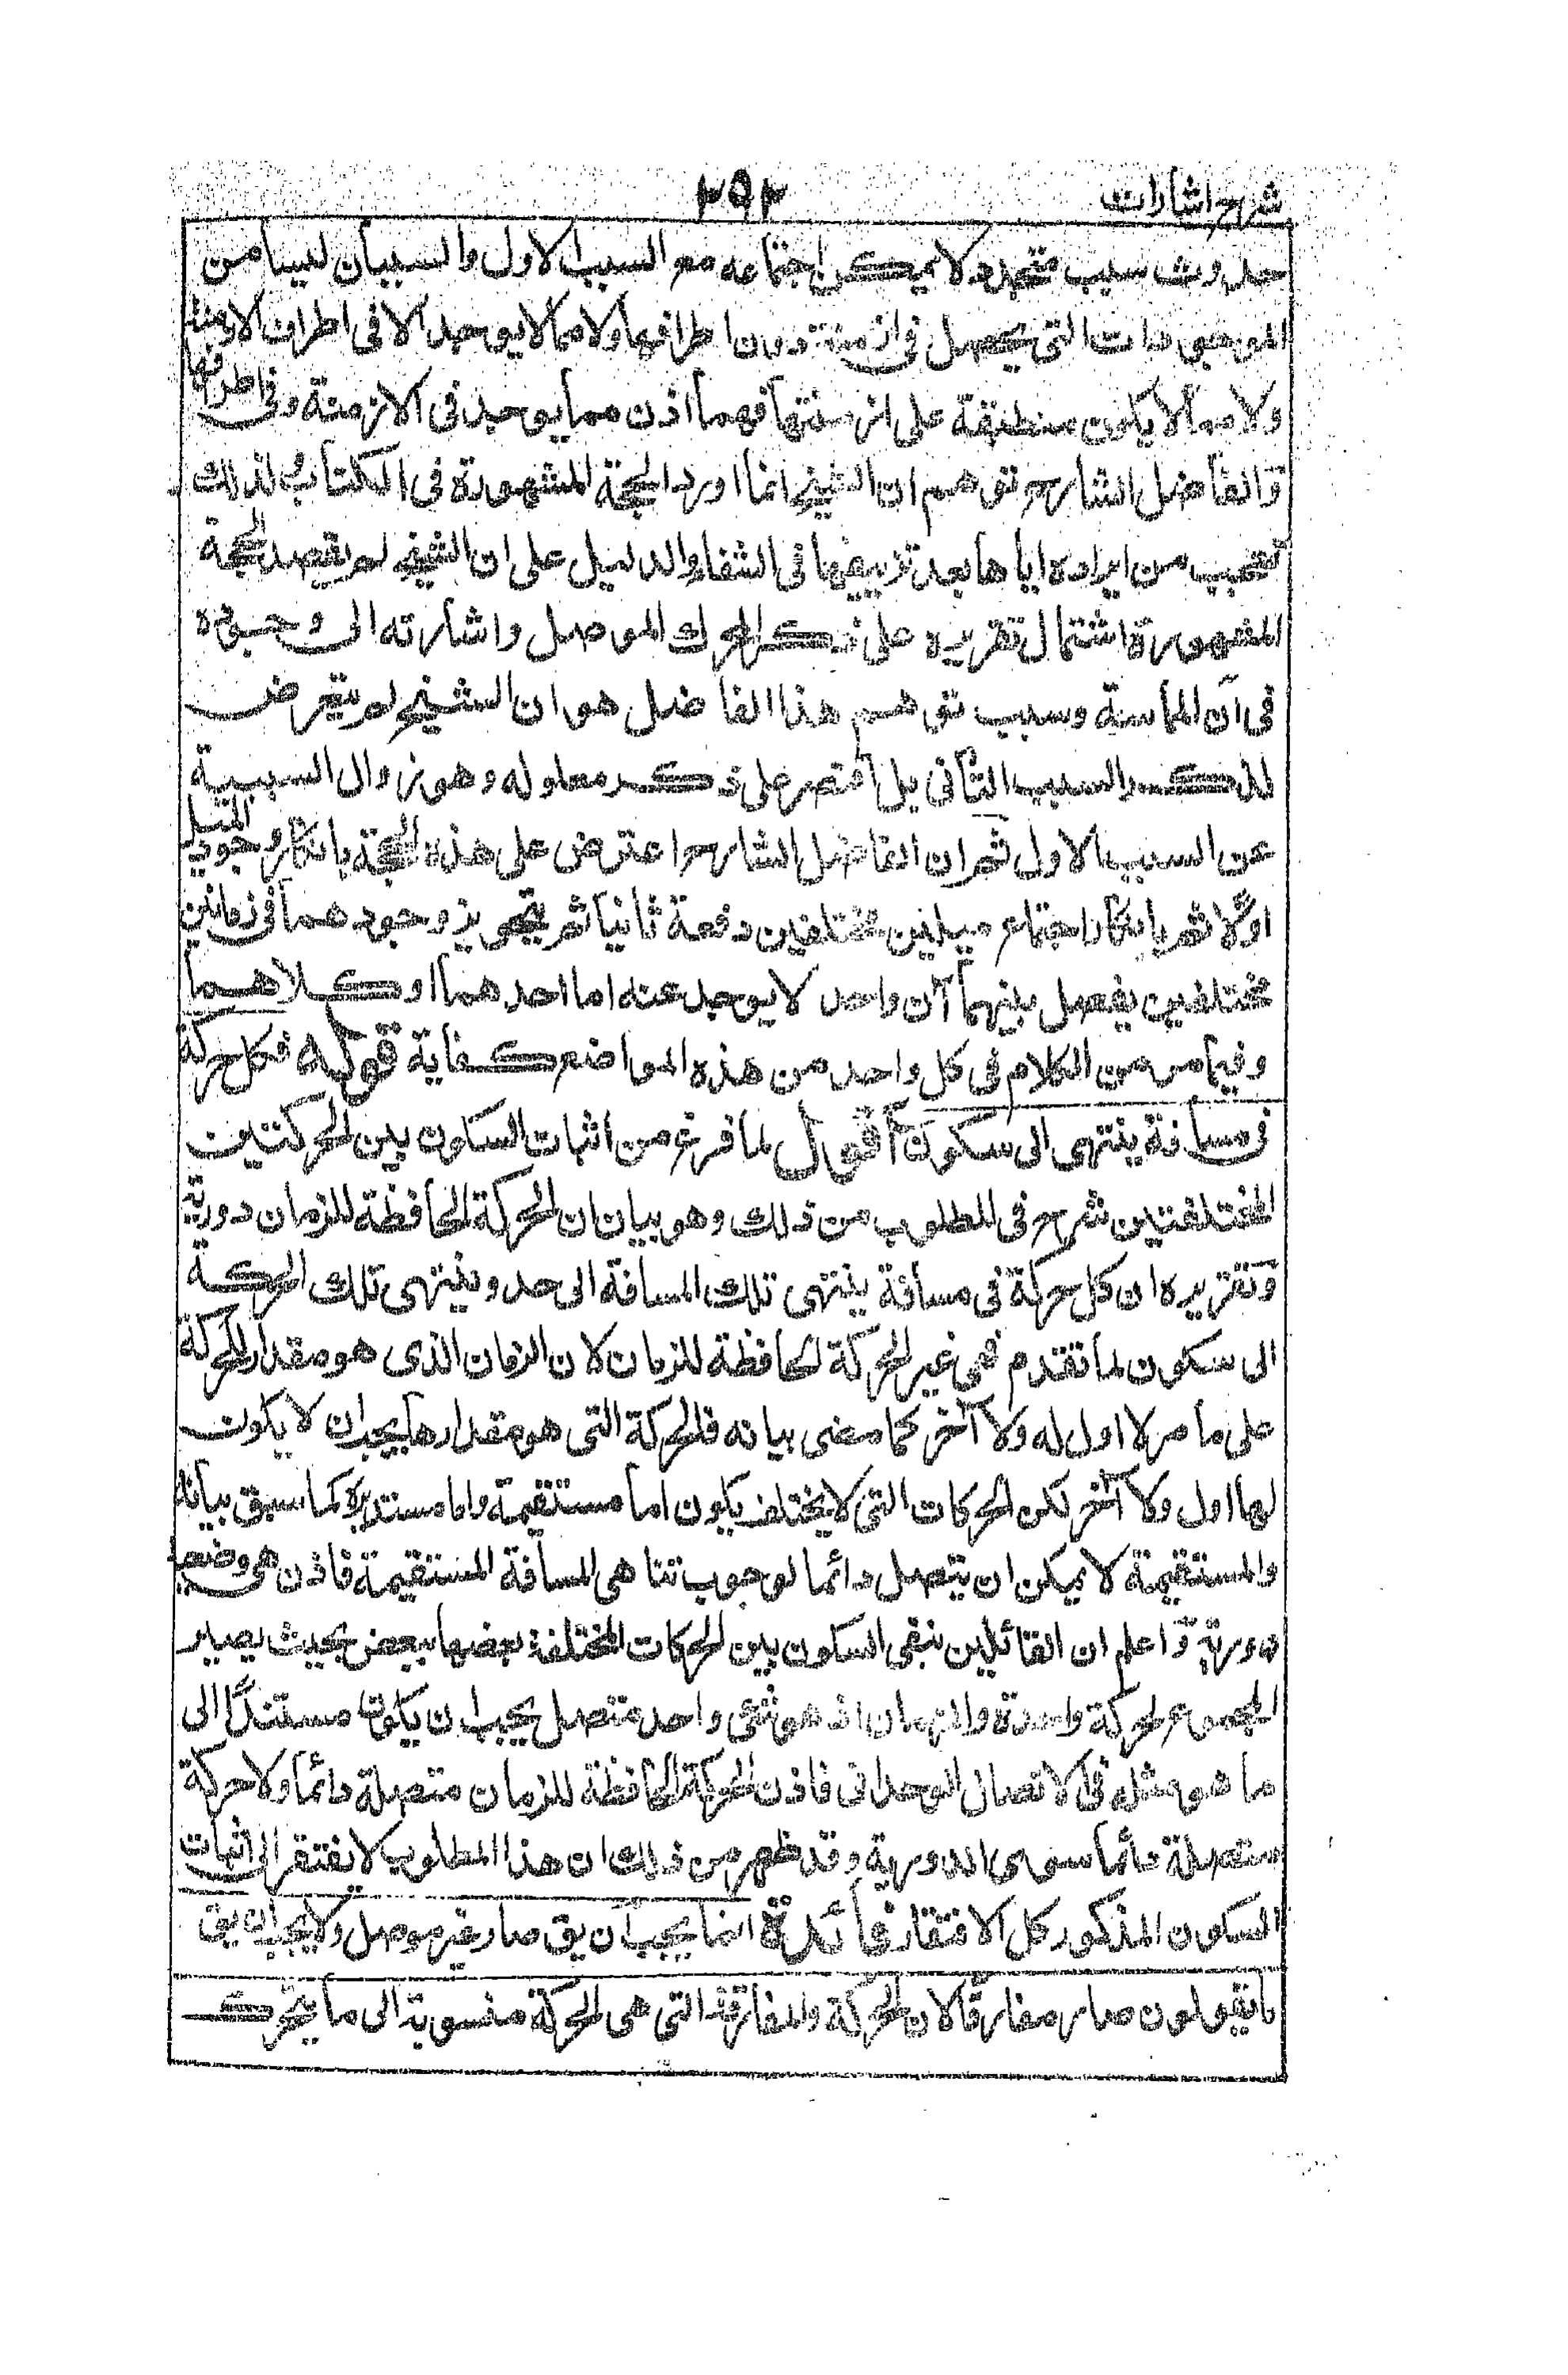 شرح اشارات
٢٩٢
حدوث سبب متجدد لا يمكن اجتماعه مع السبب الاول والسببان ليسا من
الموجودات التى يحصل فى ازمنة دون اطرافها ولا مما لا يوجد الا فى اطراف الازمنة
ولا مما لا يكون منطبقة على ازمنتها فهما اذن مما يوجد فى الازمنة وفى اطرافها
والفاضل الشارح توهم ان الشيخ انما اورد الحجة المشهورة فى الكتاب لذلك
تعجب من ايراده اياها بعد تزييفها فى الشفاء والدليل على ان الشيخ لم يقصد الحجة
المشهورة اشتمال تقريره على ذكر المحرك الموصل واشارته الى وجوده
فى آن المماسة وسبب توهم هذا الفاضل هو ان الشيخ لم يتعرض
لذكر السبب الثانى بل اقتصر على ذكر معلوله وهو زوال السببية
عن السبب الاول ثم ان الفاضل الشارح اعترض على هذه الحجة بانكار وجود الميل
اولا ثم بانكار اجتماع ميلين مختلفين دفعة ثانيا ثم بتجويز وجودهما فى زمانين
مختلفين يفصل بينهما آن واحد لا يوجد عنه اما احدهما او كلاهما
وفيما مر من الكلام فى كل واحد من هذه المواضع كفاية قوله فكل حركة
فى مسافة ينتهى الى سكون اقول لما فرغ من اثبات السكون بين الحركتين
المختلفتين شرح فى المطلوب من ذلك وهو بيان ان الحركة الحافظة للزمان دورية
وتقريره ان كل حركة فى مسافة ينتهى تلك المسافة الى حد وينتهى تلك الحركة
الى سكون لما تقدم فهى غير الحركة الحافظة للزمان لان الزمان الذى هو مقدار الحركة
على ما مر لا اول له ولا آخر كما مضى بيانه فالحركة التى هو مقدارها يجب ان لا يكون
لها اول ولا آخر لكن الحركات التى لا يختلف يكون اما مستقيمة واما مستديرة كما سبق بيانه
والمستقيمة لا يمكن ان يتصل دائما لوجوب تناهى المسافة المستقيمة فاذن هى وضعية
دورية واعلم ان القائلين بنفى السكون بين الحركات المختلفة بعضها ببعض بحيث يصير
المجموع حركة واحدة والزمان اذ هو شئ واحد متصل يجب ان يكون مستندًا الى
ما هو مثله فى الاتصال الوحدانى فاذن الحركة الحافظة للزمان متصلة دائما ولا حركة
متصلة دائما سوى الدورية وقد ظهر من ذلك ان هذا المطلوب لا يفتقر الى اثبات
السكون المذكور كل الافتقار فائدة انما يجب ان يق صار غير موصل ولا يجب ان يق
ما يقولون صار مفارقا لان الحركة والمفارقة التى هى الحركة منسوبة الى ما يتحرك